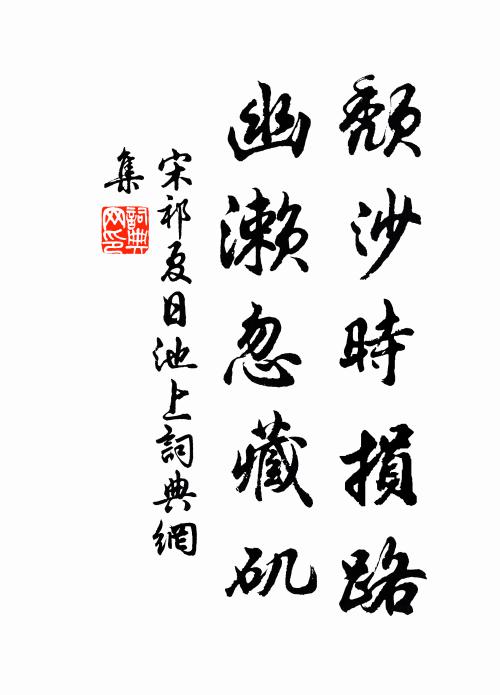 頹沙時損路
幽瀨忽藏矶
宋祁夏日池上詞典網
集
詞典
网印